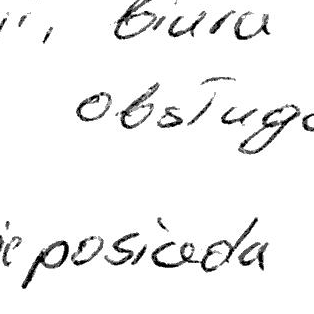 biura
obsług
posiada